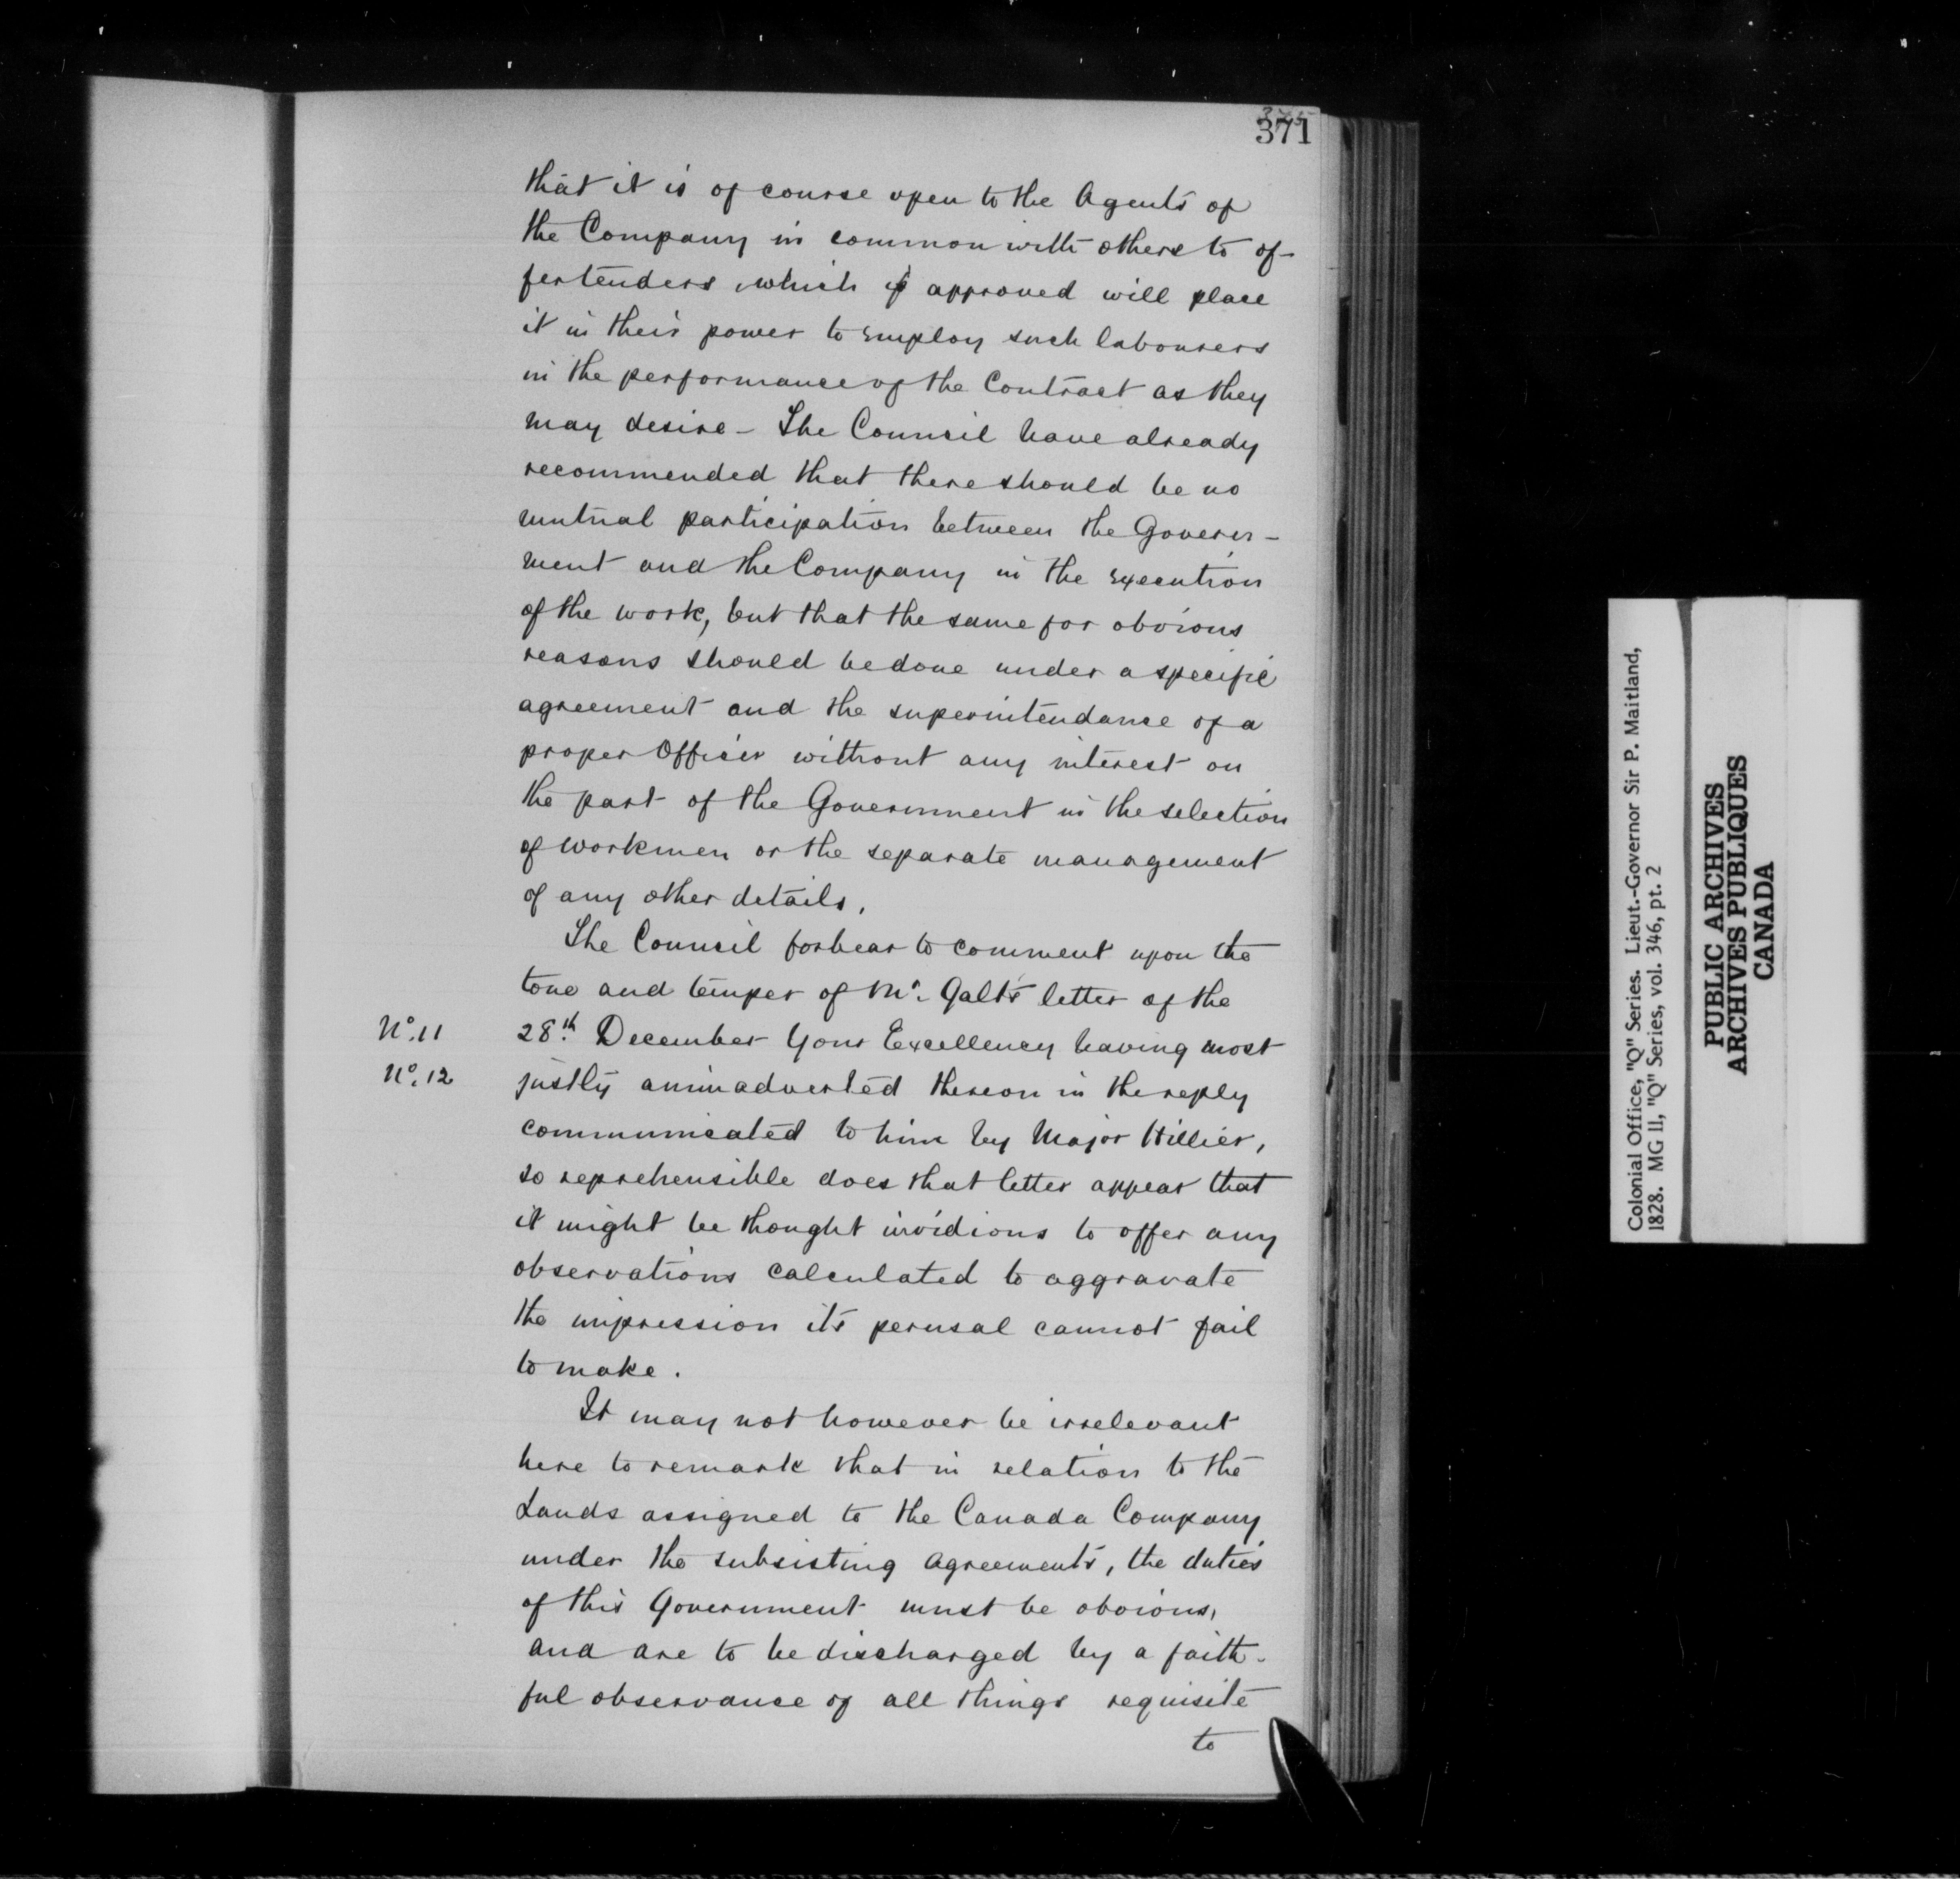 371
that it is of course open to the Agents of
the Company in common with others to of-
fer tenders which if approved will place
it in their power to employ such labourers
in the performance of the Contract as they
may desire - The Council have already
recommended that there should be no
mutual participation between the Govern-
ment and the Company in the execution
of the work, but that the same for obvious
reasons should be done under a specific
agreement and the superintendance of a
proper Officer without any interest on
the part of the Government in the selection
of workmen or the separate management
of any other details.
The Council forbear to comment upon the
tone and temper of Mr. Galt's letter of the
No. 11 28th. December Your Excellency having most
No. 12 justly animadverted thereon in the reply
communicated to him by Major Hillier,
so reprehensible does that letter appear that
it might be thought invidious to offer any
observations calculated to aggravate
the impression its perusal cannot fail
to make.
It may not however be irrelevant
here to remark that in relation to the
Lands assigned to the Canada Company
under the subsisting Agreements, the duties
of this Government must be obvious,
and are to be discharged by a faith-
ful observance of all things requisite
to
Colonial Office, "Q" Series. Lieut.-Governor Sir P. Maitland,
1828. MG 11, "Q" Series, vol. 346, pt. 2
PUBLIC ARCHIVES
ARCHIVES PUBLIQUES
CANADA